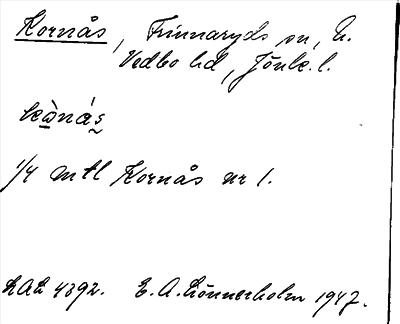 Kornås, Frinnaryds sn, N.
Vedbo hd, Jönk. l.
kὼnás
1/4 mtl Kornås nr 1.
LAL 4392. E. A. Lönnerholm 1947.